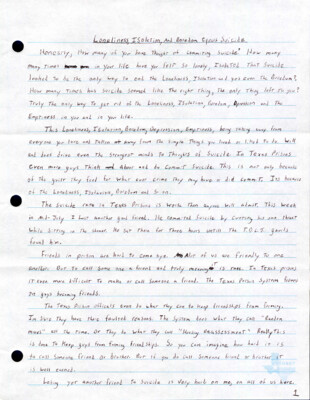 Loneliness Isolation, And Boredom Equals Suicide
Honestly, How many of you have thought of commiting suicide? How many
many times in your life have you felt so lonely, Isolated, that Suicide
looked to be the only way to end the Loneliness, Isolation and yes even the Boredom?
How many times has Suicide seemed like the right thing, the only thing left to you?
Truly the only way to get rid of the Loneliness, Isolation, Boredom, Depression and the
Emptiness in you and in your life.
This Loneliness, Isolation, Boredom, Depression, Emptiness, being away from
everyone you love and from the simple things you used to do
will and have driven even the strongest minds to thoughts of Suicide. In Texas Prisons
even more guys think About and do Commit Suicide. This is not only because
of the guilt they feel for what ever crime they may have did commit. Its because
of the Loneliness, Isolation, Boredom and so on.
The Suicide rate in Texas Prisons is worse than anyone will admit. This week
in July I lost another good friend. He committed Suicide by cutting his own throat
while sitting in the shower. He sat there for three hours until the T.D.C.J. guards
found him.
Friends in prison are hard to come by. Alot of us are friendly to one
another. But to call some one a friend and truly mean is rare. In Texas prisons
it even more difficult to make or call someone a friend. The Texas Prison System
guys becoming friends.
The Texas Prison officials even do what they can to keep friendships from forming.
I'm sure they have their reasons. The system has what they call "Random
moves" all the time. Or they do what they call "Housing Reassessment" Really this
is done to keep guys from forming friendships. So you can imagine, how hard it is
to call someone friend or brother. But if you do call someone friend or brother it
is well earned.
Losing yet another friend to Suicide is very hard on me, on all of us here.
1